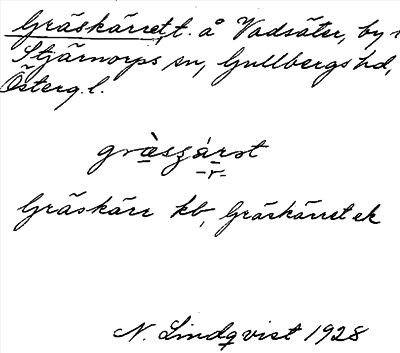 Gräskärret, t. å Vadsäter, by i
Stjärnorps sn, Gullbergs hd,
Österg. l.
gràsʒárət
-r-
Gräskärr kb, Gräskärret ek
N. Lindqvist 1928